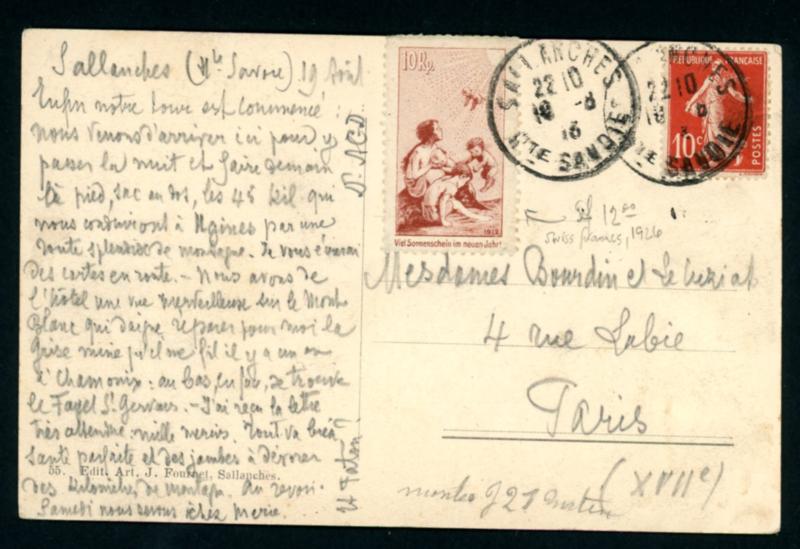 Sallanches (Hte Savoie) 19 Août
Enfin notre tour est commencé :
nous venons d'arriver ici pour y
passer la nuit et faire demain
à pied, sac au dos, les 45 kil qui
nous conduiront à Ugines par une
route splendide de montagne. Je vous
des cartes en route. - Nous avons de
l'hôtel une vue merveilleuse sur le Mont
Blanc qui daigne réparer pour moi la
grise mine qu'il me fit il y a un an
à Chamonix : au bas, se trouve
le Fayet St Gervais. - J'ai reçu la lettre
très attendue : mille mercis. Tout va bien
santé parfaite et des jambes à dévorer
des kilomètres de montagne. Au revoir.
Samedi nous serons chez Merie.
55. Edit. Art. J. Fournet, Sallanches.
10 Rp.
1912
Viel Sonnenschein im neuen Jahr!
SALLANCHES
22 10
19 -8
13
HTE SAVOIE
22 10
19 8
TE SAVOIE
REPUBLIQUE FRANÇAISE
10c
POSTES
12.00
swiss 1926
Mesdames Bourdin et
4 rue Labie
Paris
(XVIIe)